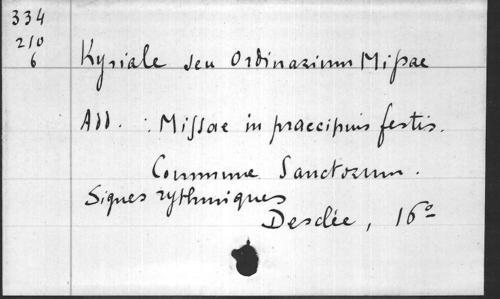 334
210
6
Kyriale seu Ordinarium Missae
Add. : Missae in praecipuis festis.
Commune Sanctorum.
Signes rythmiques
Desclée, 16º